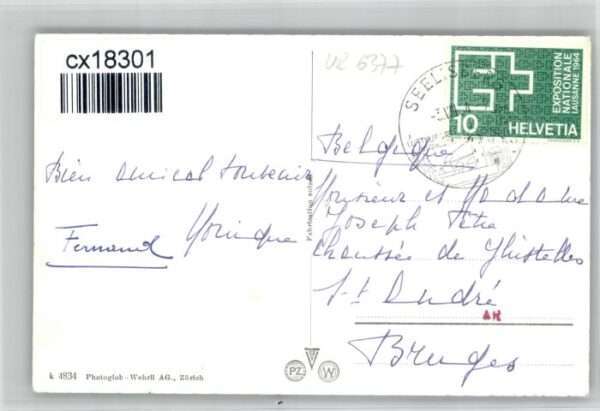 cx18301
UR 6377
SEEL
EXPOSITION
NATIONALE
LAUSANNE 1964
10 HELVETIA
Belgique
Bien amical souvenir
Fernand Monique
Monsieur et Madame
Joseph
Chaussée de Ghistelles
St André
AR
Bruges
k 4834 Photoglob-Wehrli AG., Zürich
PZ W